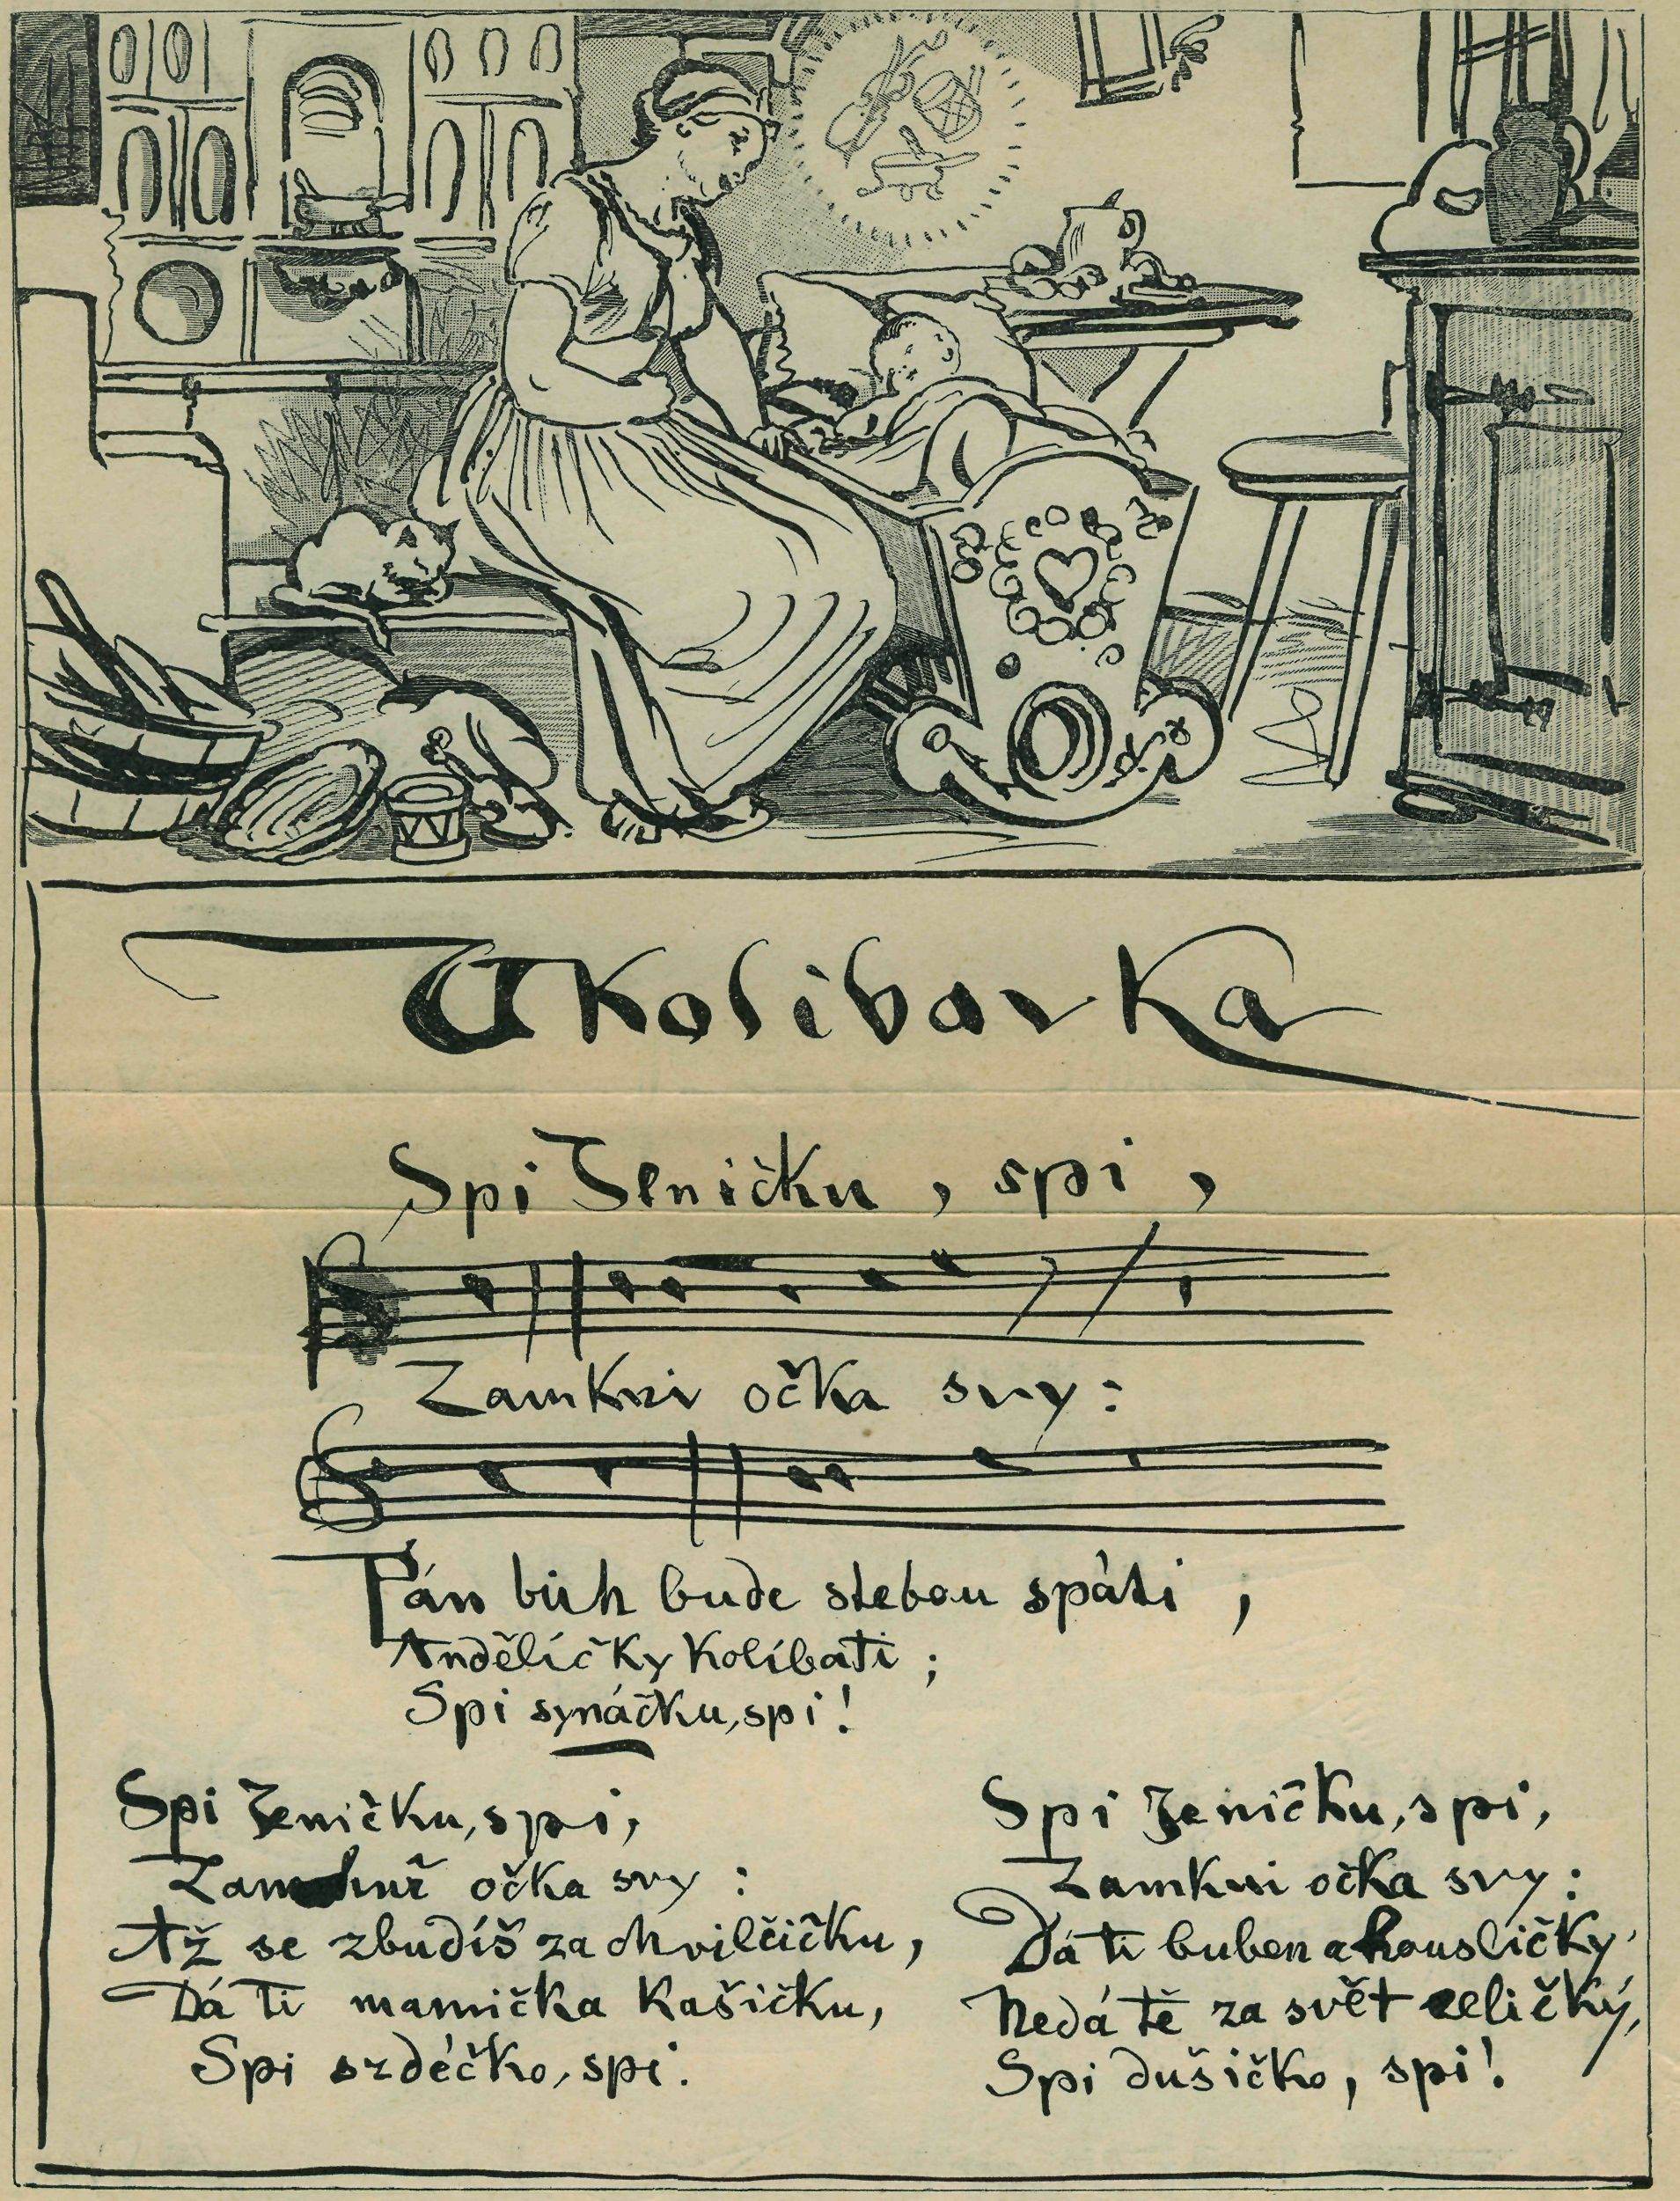 Ukolibavka
Spi Jeničku, spi,
Zamkni očka svy:
Pán bůh bude stebou spáti,
Andělíčky kolíbati;
Spi synáčku, spi!
Spi Jeničku, spi,
očka svy:
Až se zbudíš za chvilčičku,
Dá ti mamička kašičku,
Spi srdéčko, spi.
Spi Jeničku, spi,
Zamkni očka svy:
Dá ti buben a housličky,
Nedá tě za svět celičký,
Spi dušičko, spi!